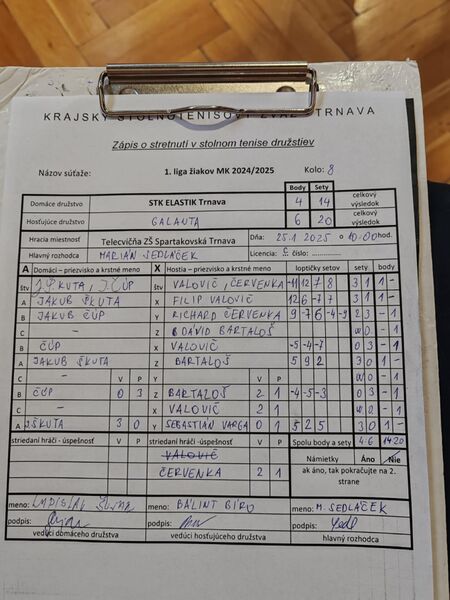 KRAJSKÝ STOLNOTENISOVÝ ZVÄZ TRNAVA
Zápis o stretnutí v stolnom tenise družstiev
Názov súťaže: 1. liga žiakov MK 2024/2025 Kolo: 8
Body Sety
Domáce družstvo STK ELASTIK Trnava 4 14 celkový výsledok
Hosťujúce družstvo GALANTA 6 20 celkový výsledok
Hracia miestnosť Telecvičňa ZŠ Spartakovská Trnava Dňa: 25.1 2025 o 10:00 hod.
Hlavný rozhodca MARIÁN SEDLÁČEK Licencia č. číslo:
A Domáci – priezvisko a krstné meno X Hostia – priezvisko a krstné meno loptičky setov sety body
štv ŠKUTA, J. ČÚP štv VALOVIČ, ČERVENKA -11 12 7 8 3 1 1 -
A JAKUB ŠKUTA X FILIP VALOVIČ 12 6 -7 7 3 1 1 -
B JAKUB ČÚP Y RICHARD ČERVENKA 9 -7 6 -4 -9 2 3 - 1
C - Z DÁVID BARTALOŠ WO - 1
B ČÚP X VALOVIČ -5 -4 -7 0 3 - 1
A JAKUB ŠKUTA Z BARTALOŠ 5 9 2 3 0 1 -
C - Y V P WO - 1
B ČÚP V P 0 3 Z BARTALOŠ 2 1 -4 -5 -3 0 3 - 1
C - X VALOVIČ 2 1 WO - 1
A J. ŠKUTA 3 0 Y SEBASTIÁN VARGA 0 1 5 2 5 3 0 1 -
striedaní hráči - úspešnosť V P striedaní hráči - úspešnosť V P Spolu body a sety 4:6 14:20
VALOVIČ Námietky Áno Nie
ČERVENKA 2 1 ak áno, tak pokračujte na 2. strane
meno: meno: BÁLINT BÍRO meno: M. SEDLÁČEK
podpis: podpis: podpis:
vedúci domáceho družstva vedúci hosťujúceho družstva hlavný rozhodca